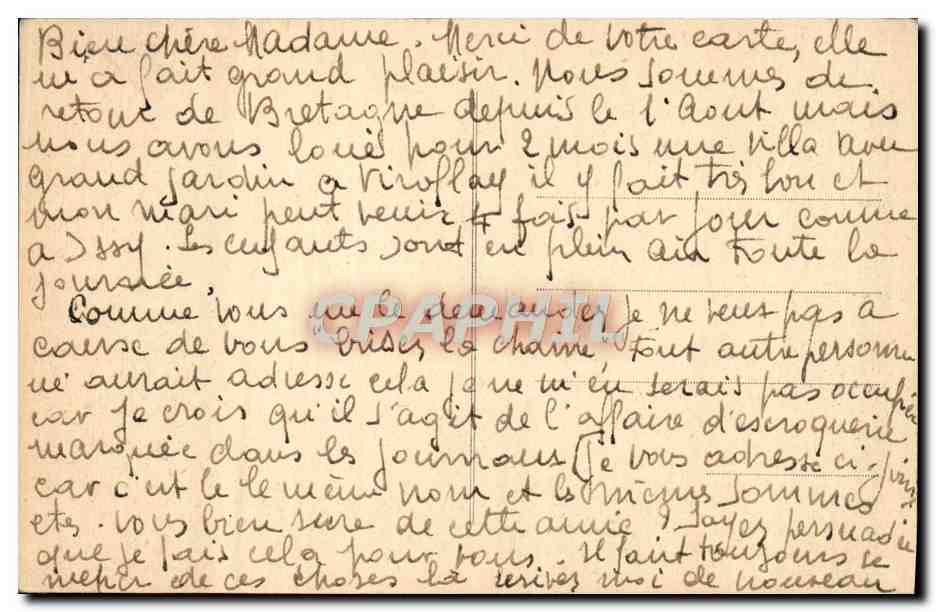 Bien chère Madame. Merci de votre carte, elle
m'a fait grand plaisir. Nous sommes de
retour de Bretagne depuis le 1 Aout mais
nous avons loué pour 2 mois une villa avec
grand jardin a Viroflay il y fait très bon et
mon mari peut venir fois par jour comme
a Issy. Les enfants sont en plein air toute la
journée.
Comme vous me le demandez je ne veux pas a
cause de vous "briser la chaine" Tout autre personne
m'aurait adresse cela je ne m'en serais pas occupée
car je crois qu'il s'agit de l'affaire d'escroquerie
marquée dans les journaux (je vous adresse ci-joint
car c'est le le même nom et les mêmes sommes
etes-vous bien sure de cette amie? Soyez persuadée
que je fais cela pour vous. Il faut toujours se
mefier de ces choses la ecrivez moi de nouveau
CPAPHIL